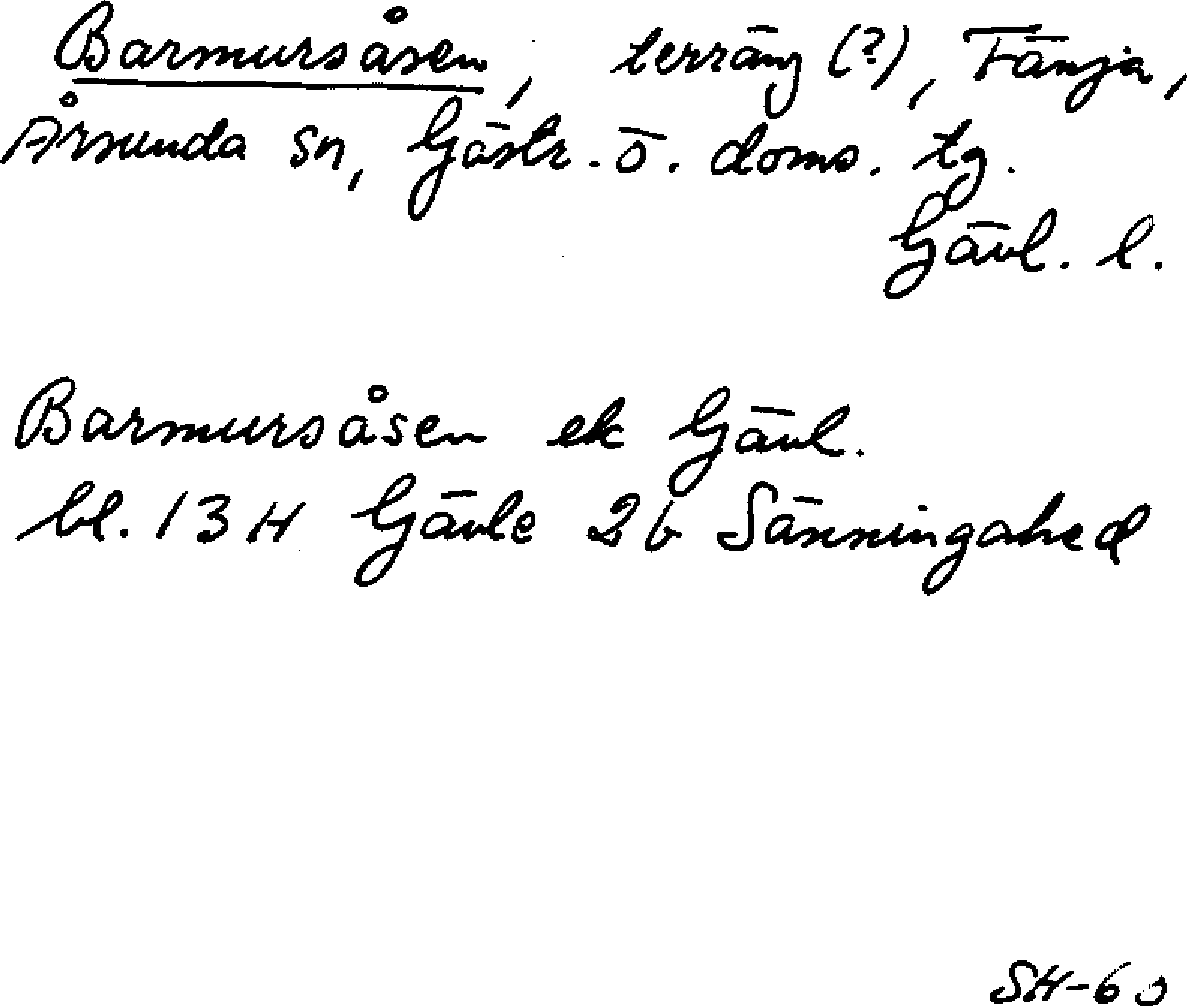 Barmursåsen, terräng (?), Fänja,
Årsunda sn, Gästr. ö. doms. tg.
Gävl. l.
Barmursåsen ek Gävl.
bl. 13 H Gävle 2 b Sänningahed
SH-60